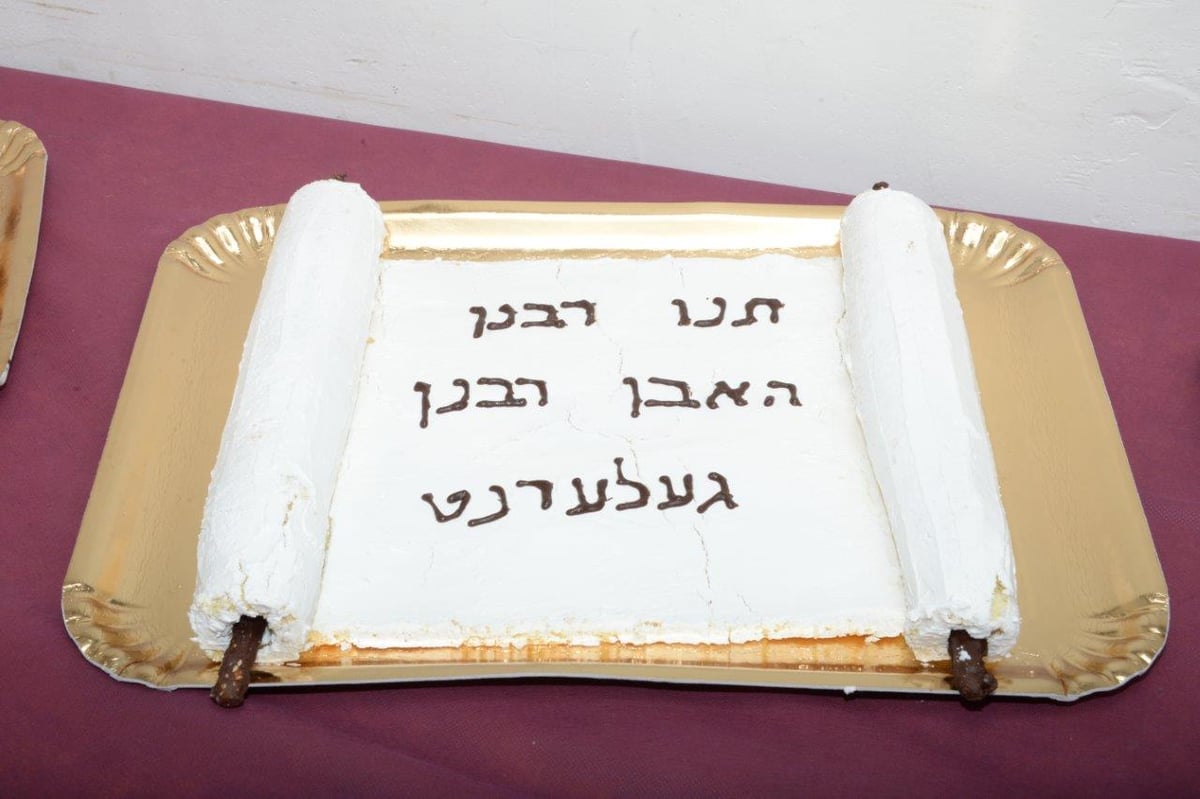 תנו רבנן
האבן רבנן
געלערנט